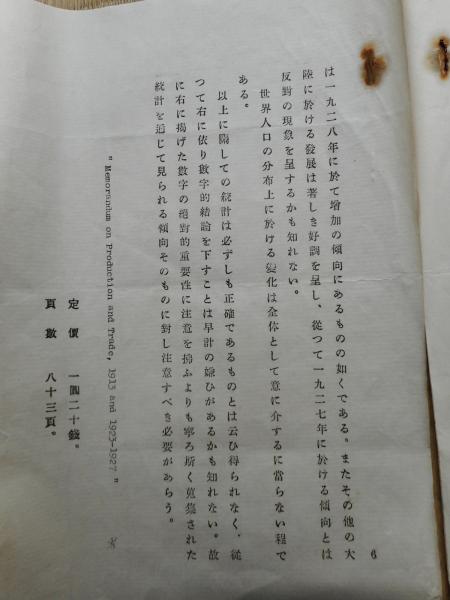 は一九二八年に於て增加の傾向にあるものの如くである。またその他の大
陸に於ける發展は著しき好調を呈し、從つて一九二七年に於ける傾向とは
反對の現象を呈するかも知れない。
世界人口の分布上に於ける變化は全体として意に介するに當らない程で
ある。
以上に關しての統計は必ずしも正確であるものとは云ひ得られなく、從
つて右に依り數字的結論を下すことは早計の嫌ひがあるかも知れない。故
に右に揭げた數字の絕對的重要性に注意を拂ふよりも寧ろ斯く蒐集された
統計を通じて見られる傾向そのものに對し注意すべき必要があらう。
" Memorandum on Production and Trade, 1913 and 1923-1927 "
定價 一圓二十錢。
頁數 八十三頁。
6